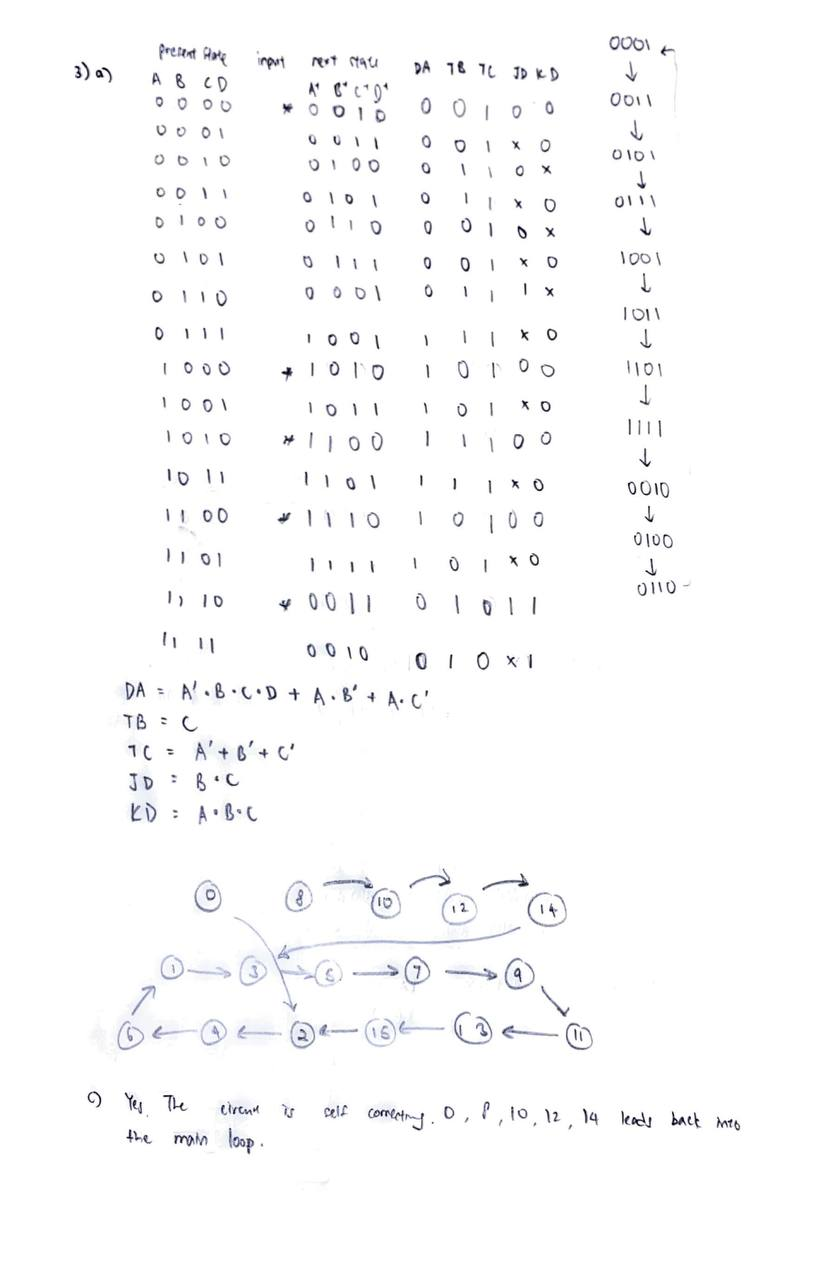 3) a)
present state input next state DA TB TC JD KD
A B C D A⁺ B⁺ C⁺ D⁺
0 0 0 0 * 0 0 1 0 0 0 1 0 0
0 0 0 1 0 0 1 1 0 0 1 x 0
0 0 1 0 0 1 0 0 0 1 1 0 x
0 0 1 1 0 1 0 1 0 1 1 x 0
0 1 0 0 0 1 1 0 0 0 1 0 x
0 1 0 1 0 1 1 1 0 0 1 x 0
0 1 1 0 0 0 0 1 0 1 1 1 x
0 1 1 1 1 0 0 1 1 1 1 x 0
1 0 0 0 * 1 0 1 0 1 0 1 0 0
1 0 0 1 1 0 1 1 1 0 1 x 0
1 0 1 0 * 1 1 0 0 1 1 1 0 0
1 0 1 1 1 1 0 1 1 1 1 x 0
1 1 0 0 * 1 1 1 0 1 0 1 0 0
1 1 0 1 1 1 1 1 1 0 1 x 0
1 1 1 0 * 0 0 1 1 0 1 0 1 1
1 1 1 1 0 0 1 0 0 1 0 x 1
0001 ←
↓
0011
↓
0101
↓
0111
↓
1001
↓
1011
↓
1101
↓
1111
↓
0010
↓
0100
↓
0110
DA = A'·B·C·D + A·B' + A·C'
TB = C
TC = A' + B' + C'
JD = B·C
KD = A·B·C
0 8 10 12 14
1 3 5 7 9
6 4 2 15 13 11
c) Yes. The circuit is self correcting. 0, 8, 10, 12, 14 leads back into
the main loop.